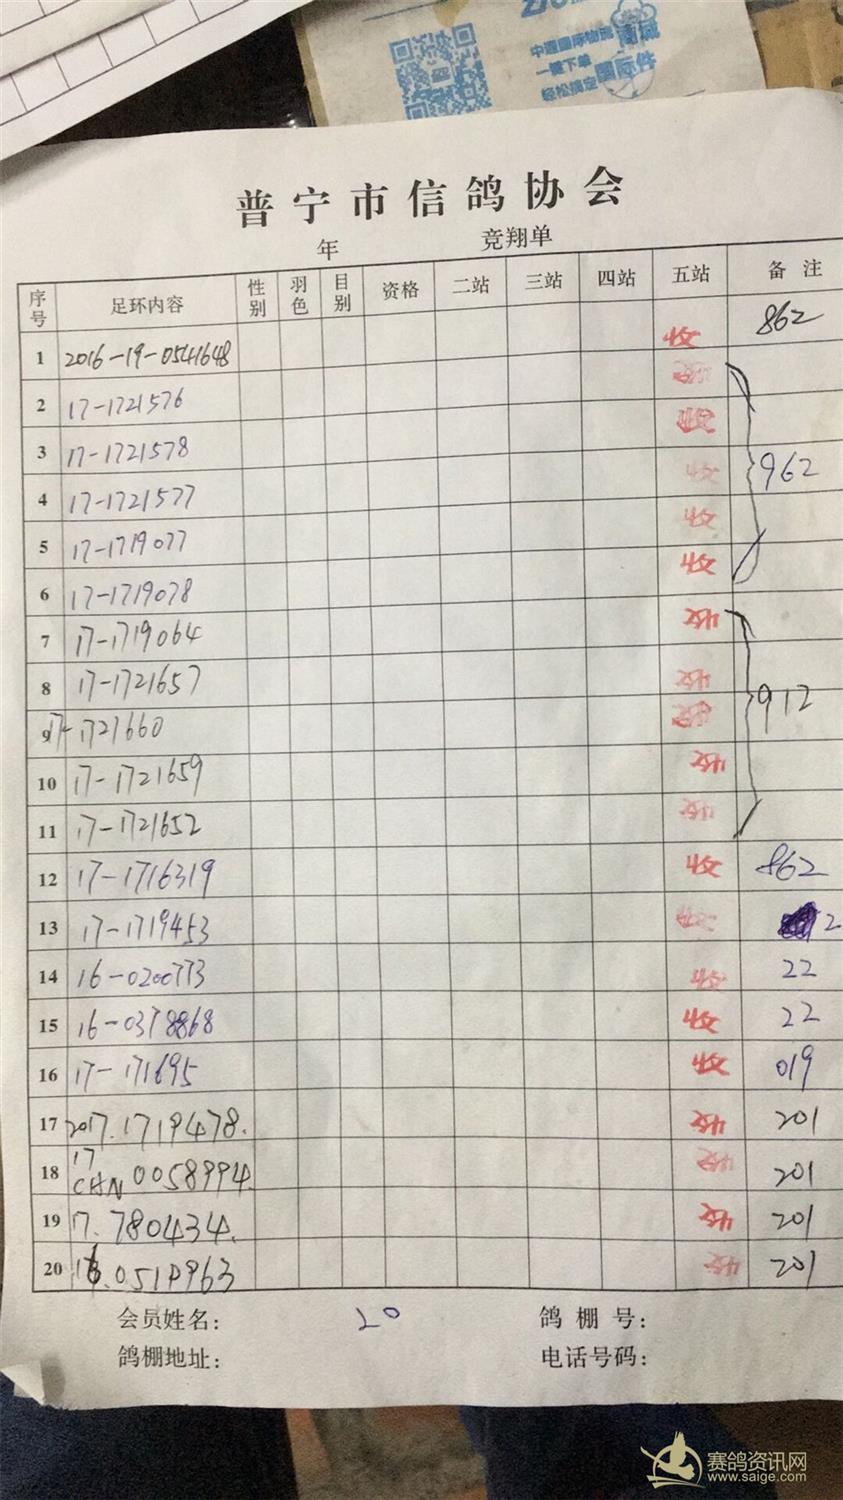 中通国际物流
一键下单
轻松搞定 国际件
普宁市信鸽协会
年 竞翔单
序号 足环内容 性别 羽色 目别 资格 二站 三站 四站 五站 备注
1 2016-19-0541648 收 862
2 17-1721576 收
3 17-1721578 收
4 17-1721577 收 962
5 17-1719077 收
6 17-1719078 收
7 17-1719064 收
8 17-1721657 收
9 17-1721660 收 912
10 17-1721659 收
11 17-1721652 收
12 17-1716319 收 862
13 17-1719453 收 2
14 16-0200773 收 22
15 16-0378868 收 22
16 17-171695 收 019
17 2017.1719478. 收 201
18 17 CHN 0058994. 收 201
19 17.780434. 收 201
20 16.0519963 收 201
会员姓名： 20 鸽棚号：
鸽棚地址： 电话号码：
赛鸽资讯网
www.saige.com